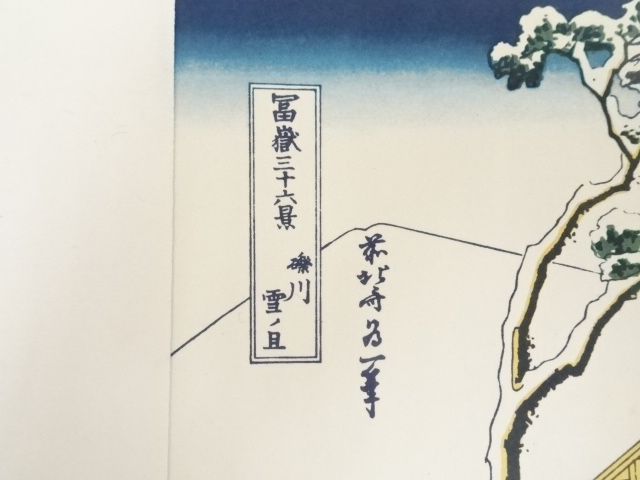 冨嶽三十六景
礫川
雪ノ且
前北斎為一筆